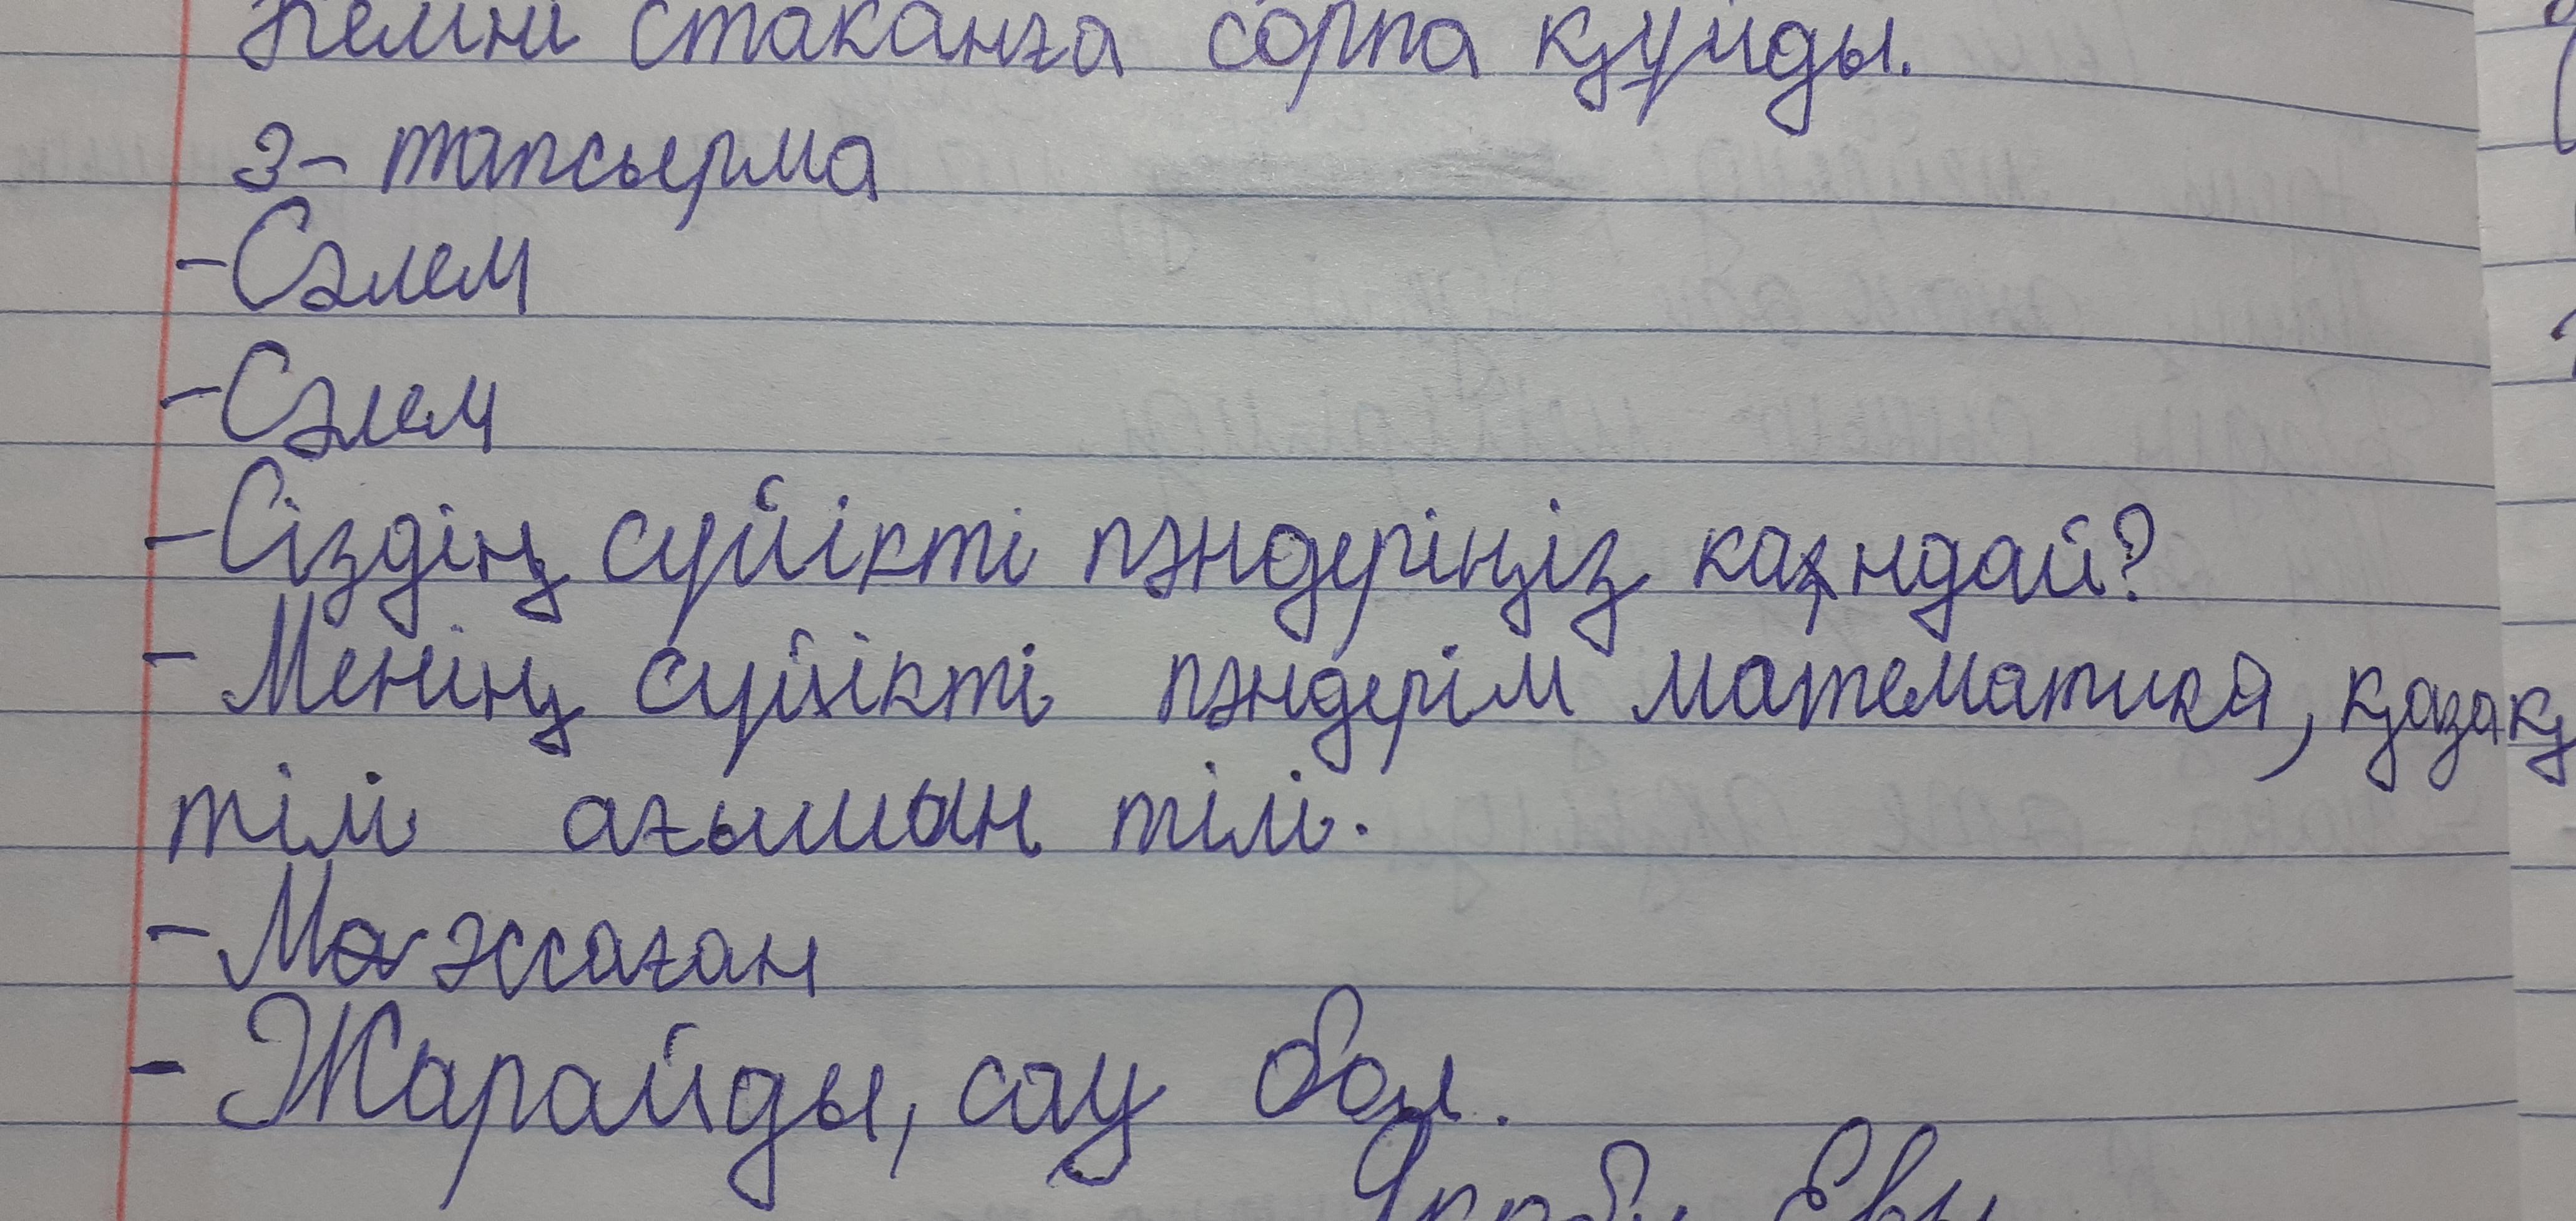 стаканға сорпа құйды.
3- тапсырма
-Сәлем
-Сәлем
-Сіздің сүйікті пәндеріңіз қандай?
- Менің сүйікті пәндерім математика, қазақ
тілі ағылшын тілі.
- Ма жсаған
- Жарайды, сау бол.